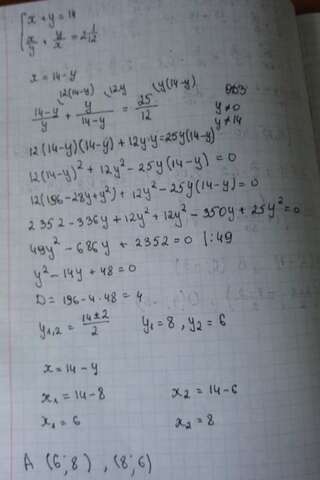 x + y = 14
x/y + y/x = 2 1/12
x = 14 - y
12(14-y) 12y y(14-y)
(14-y)/y + y/(14-y) = 25/12
y ≠ 0
y ≠ 14
12(14-y)(14-y) + 12y·y = 25y(14-y)
12(14-y)² + 12y² - 25y(14-y) = 0
12(196-28y+y²) + 12y² - 25y(14-y) = 0
2352 - 336y + 12y² + 12y² - 350y + 25y² = 0
49y² - 686y + 2352 = 0 |:49
y² - 14y + 48 = 0
D = 196 - 4·48 = 4
y₁,₂ = (14±2)/2 y₁ = 8, y₂ = 6
x = 14 - y
x₁ = 14 - 8 x₂ = 14 - 6
x₁ = 6 x₂ = 8
A (6;8), (8;6)